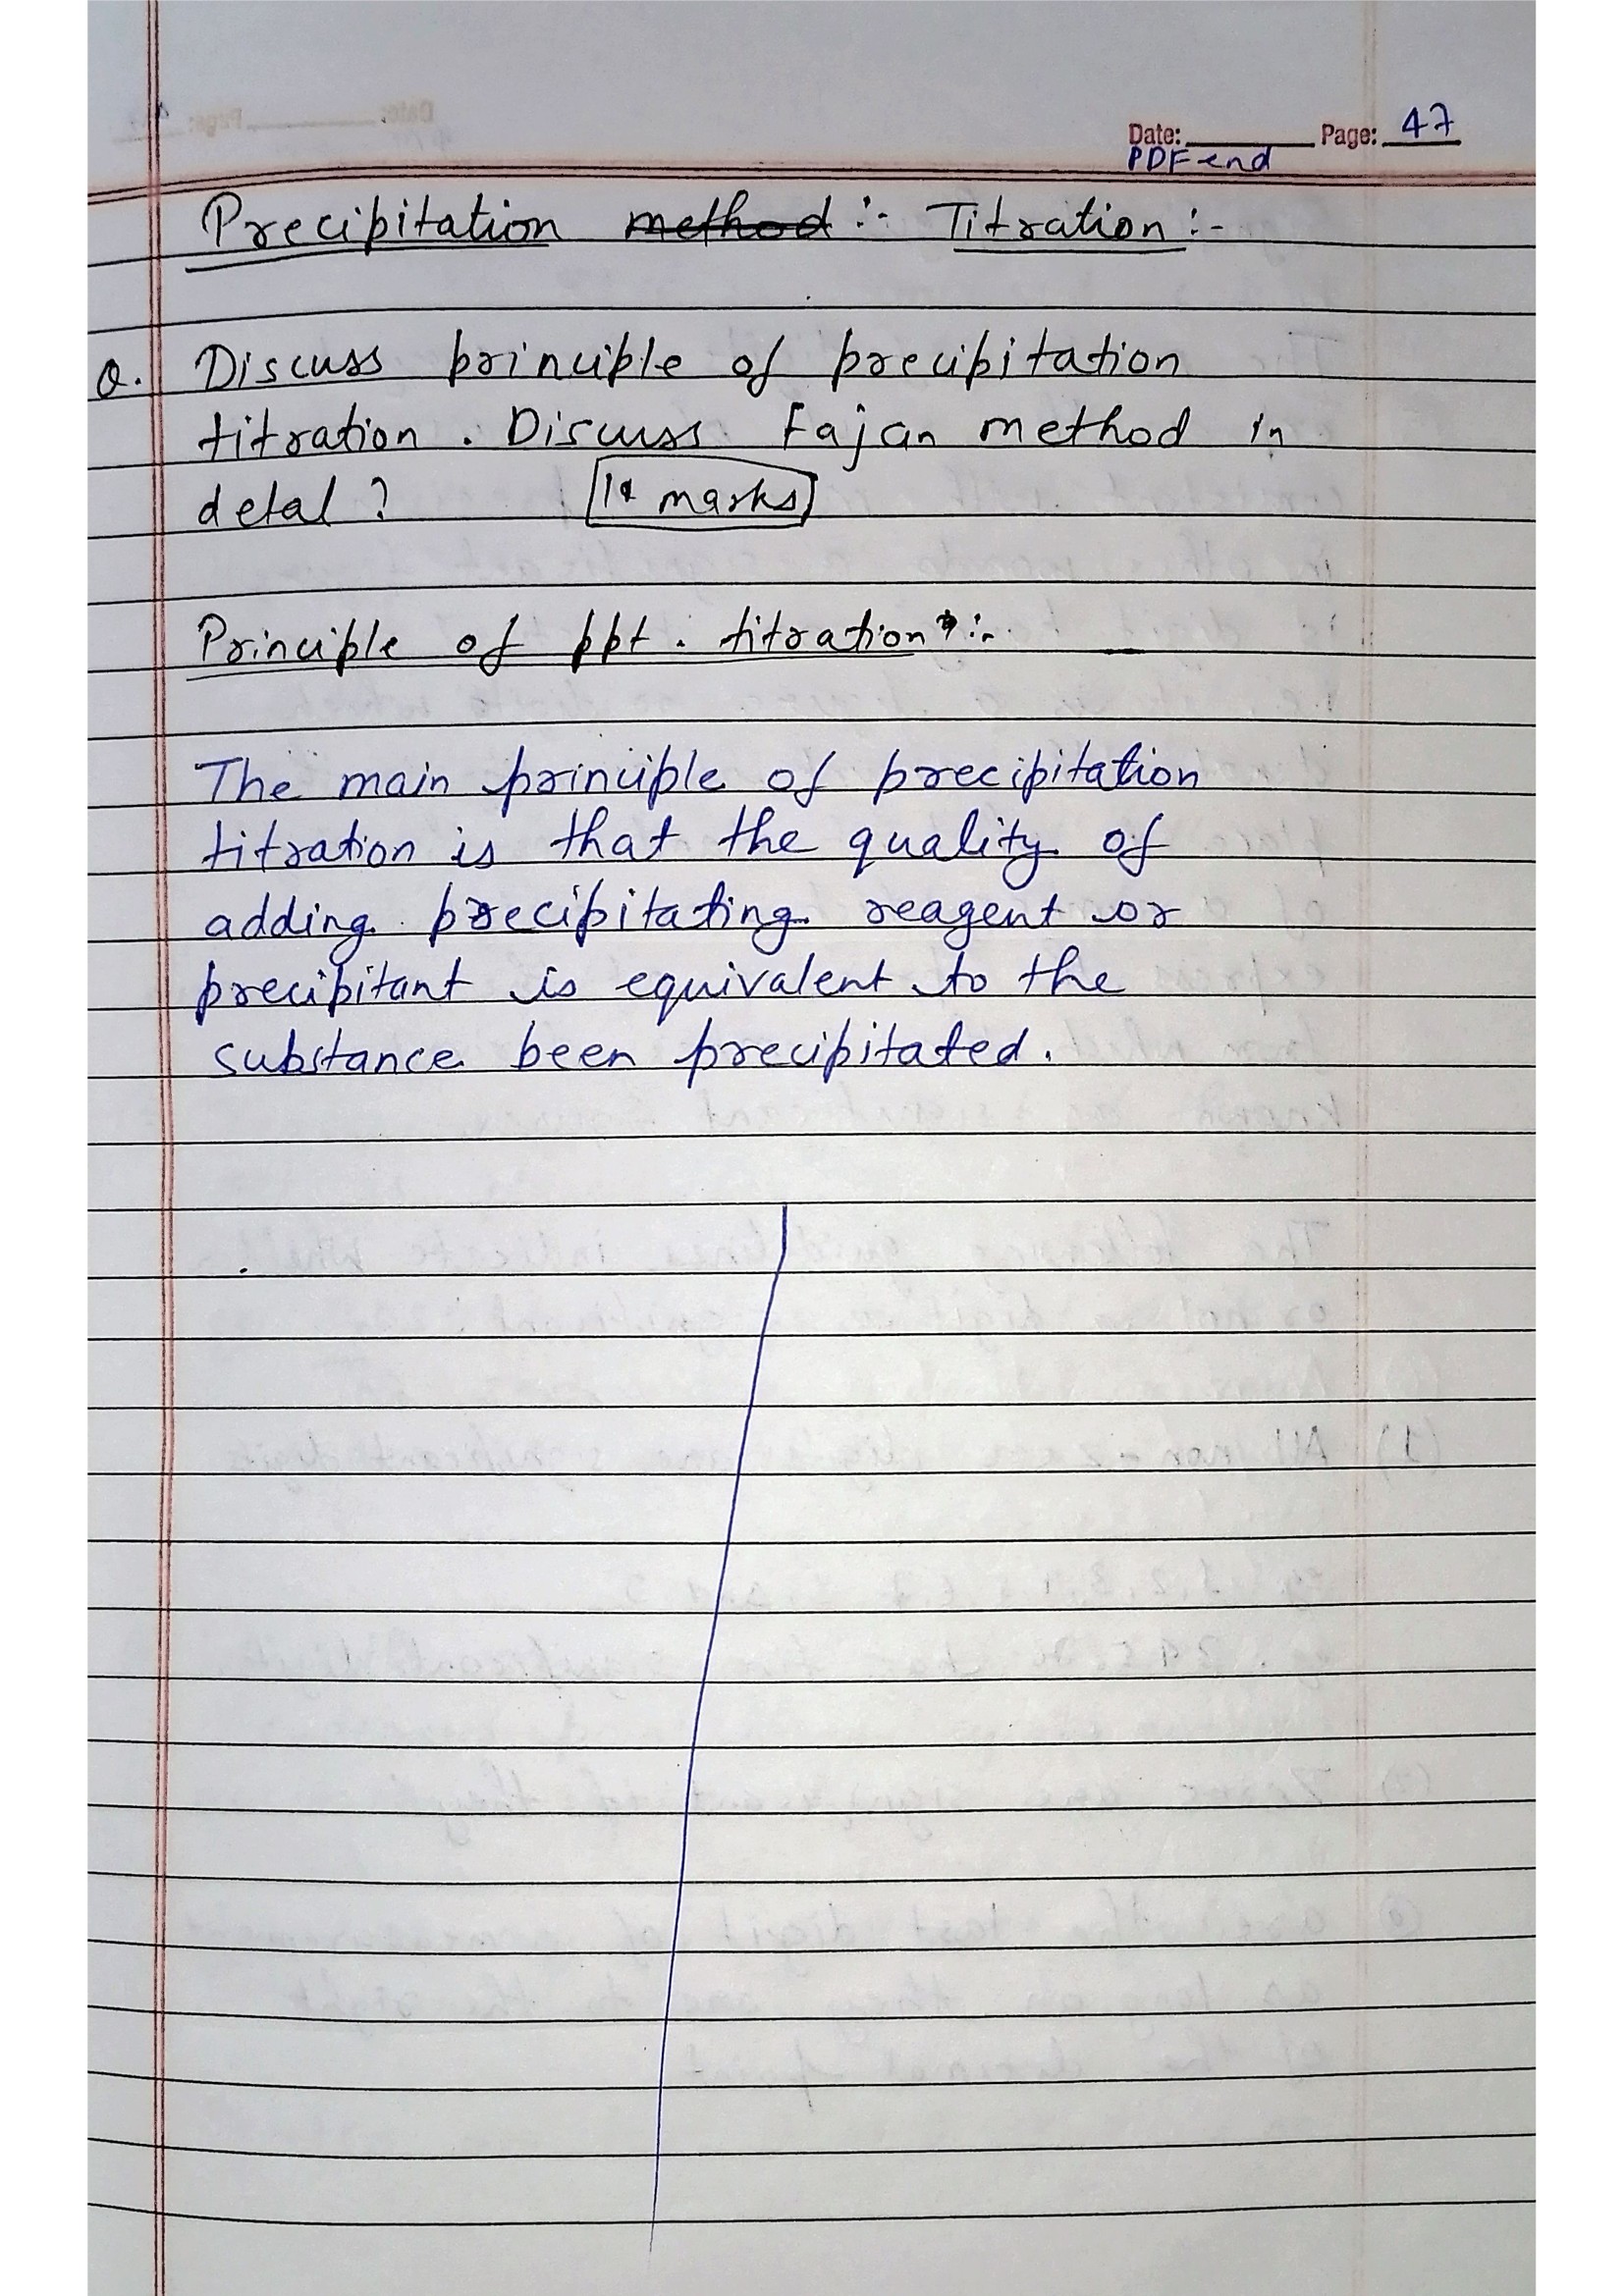 Date: Page: 47
PDF end
Precipitation method :- Titration :-
Q. Discuss principle of precipitation
titration. Discuss Fajan method in
detal ? marks
Principle of ppt. titration :-
The main principle of precipitation
titration is that the quality of
adding precipitating reagent or
precipitant is equivalent to the
substance been precipitated.